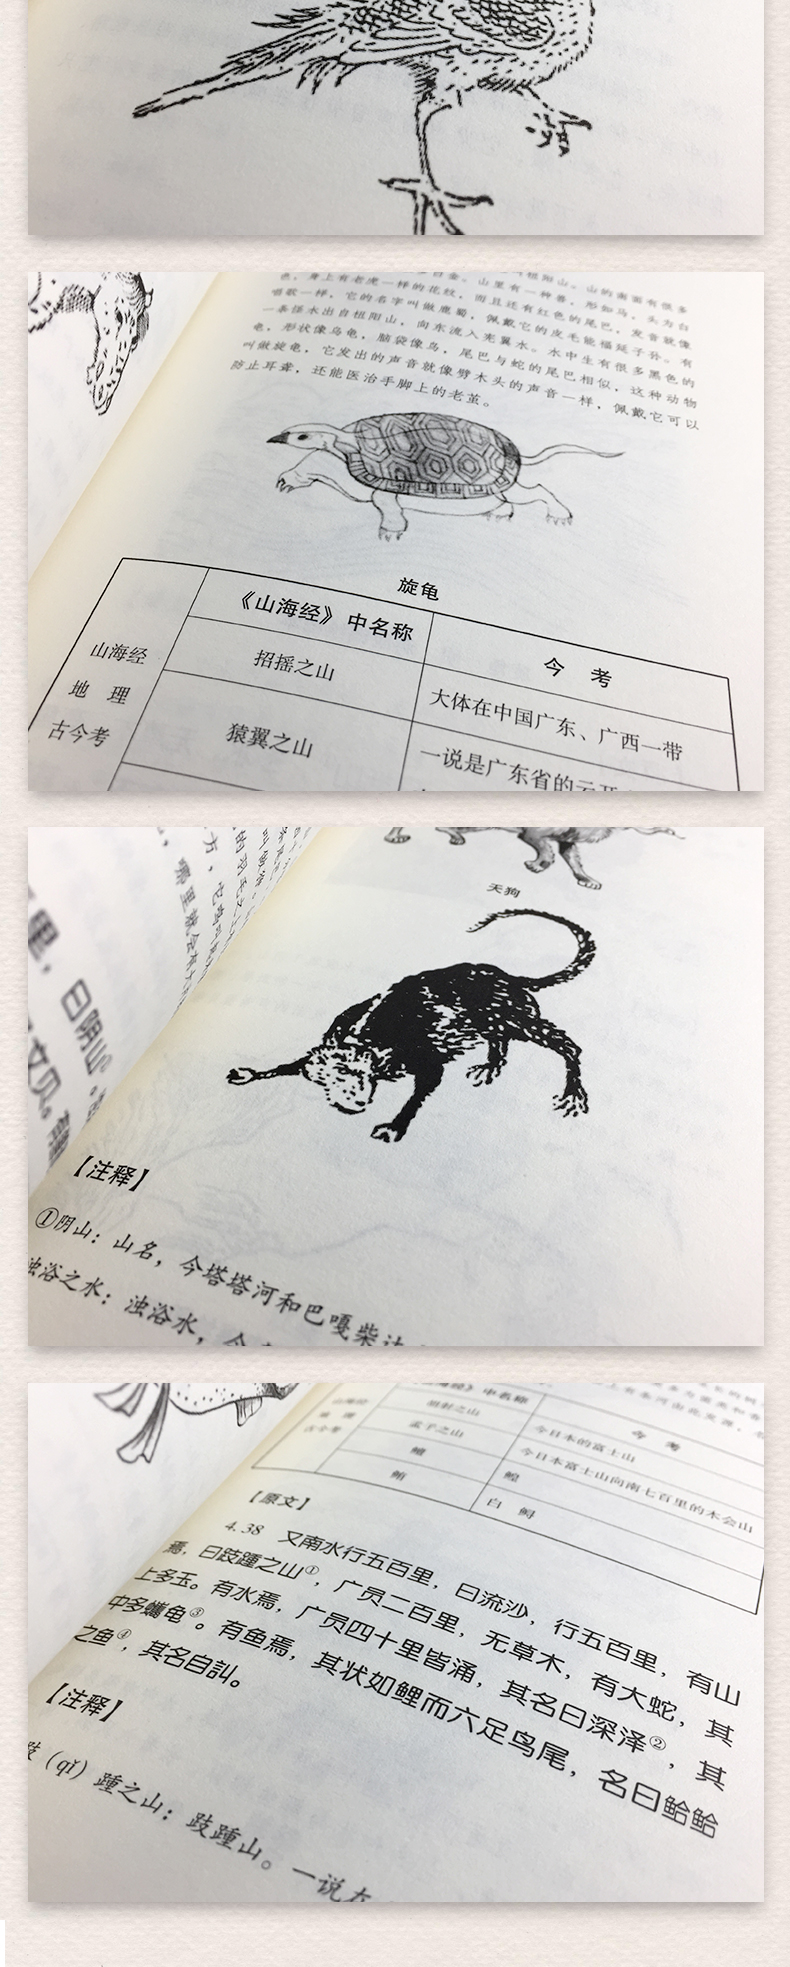 祖阳山。山的南面有很多
白金。山里有一种兽，形如马，头为白
色，身上有老虎一样的花纹，而且还有红色的尾巴，发音就像
唱歌一样，它的名字叫做鹿蜀，佩戴它的皮毛能福延子孙。有
一条怪水出自杻阳山，向东流入宪翼水。水中生有很多黑色的
龟，形状像乌龟，脑袋像鸟，尾巴与蛇的尾巴相似，这种动物
叫做旋龟，它发出的声音就像劈木头的声音一样，佩戴它可以
防止耳聋，还能医治手脚上的老茧。
旋龟
山海经
地 理
古今考
《山海经》中名称
今 考
招摇之山
大体在中国广东、广西一带
猿翼之山
一说是广东省的云开
天狗
里，曰阴山
文贝。有
哪里就会有
【注释】
①阴山：山名，今塔塔河和巴嘎柴达
浊浴之水：浊浴水，今
山海经
地 理
古今考
《山海经》中名称
今 考
胡射之山
今日本的富士山
孟子之山
今日本富士山向南七百里的木会山
鳣
鳇
鲔
白 鲟
【原文】
4.38 又南水行五百里，曰流沙，行五百里，有山
焉，曰跂踵之山①，广员二百里，无草木，有大蛇，其
上多玉。有水焉，广员四十里皆涌，其名曰深泽②，其
中多蠵龟③。有鱼焉，其状如鲤而六足鸟尾，名曰鮯鮯
之鱼④，其名自訆。
【注释】
跂（qǐ）踵之山：跂踵山。一说在